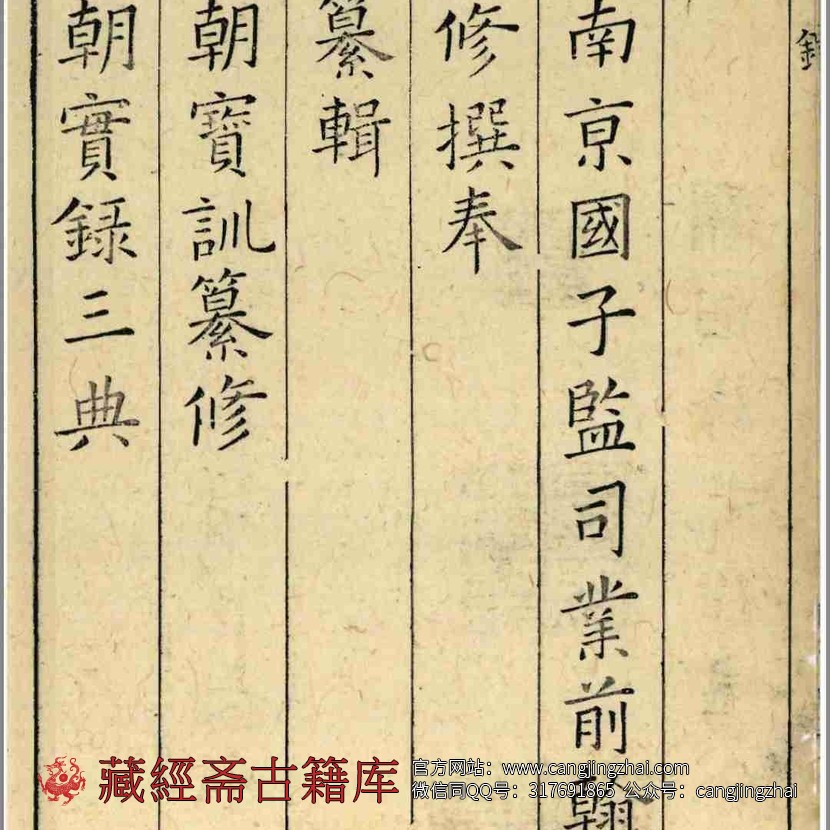 南京國子監司業前翰
修撰奉
纂輯
朝寶訓纂修
朝實録三典
藏經斋古籍库
官方网站：www.cangjingzhai.com
微信同QQ号：317691865 公众号：cangjingzhai